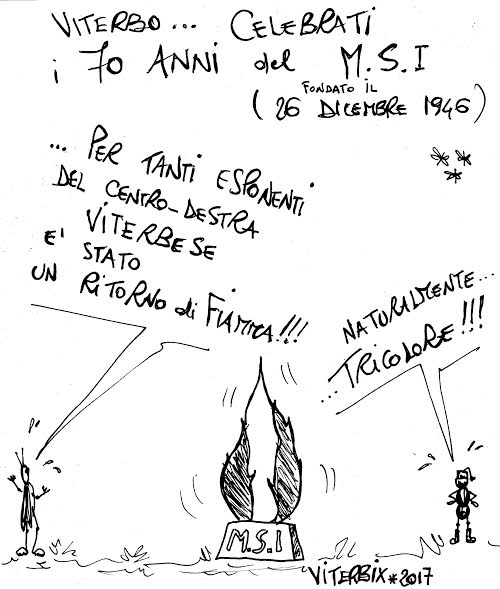 VITERBO... CELEBRATI
i 70 ANNI del M.S.I
FONDATO iL
( 26 DICEMBRE 1946)
... PER TANTI ESPONENTI
DEL CENTRO-DESTRA
VITERBESE
E' STATO
UN RITORNO di FIAMMA!!!
NATURALMENTE...
...TRICOLORE!!!
M.S.I
VITERBIX*2017